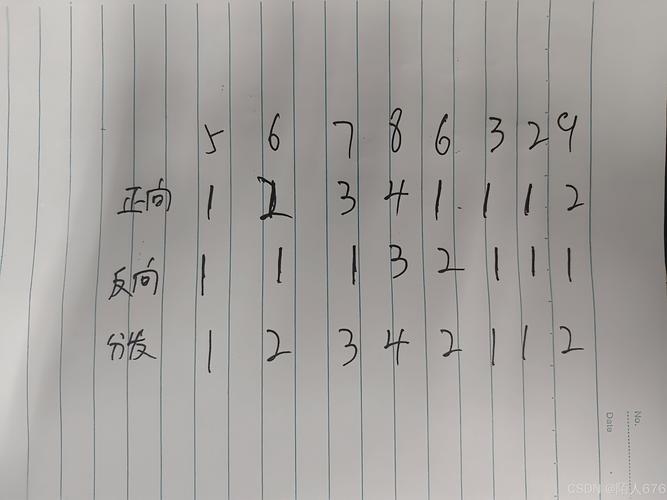 5 6 7 8 6 3 2 9
正向 1 2 3 4 1 1 1 2
反向 1 1 1 3 2 1 1 1
分发 1 2 3 4 2 1 1 2
No.
Date
CSDN @陌人676